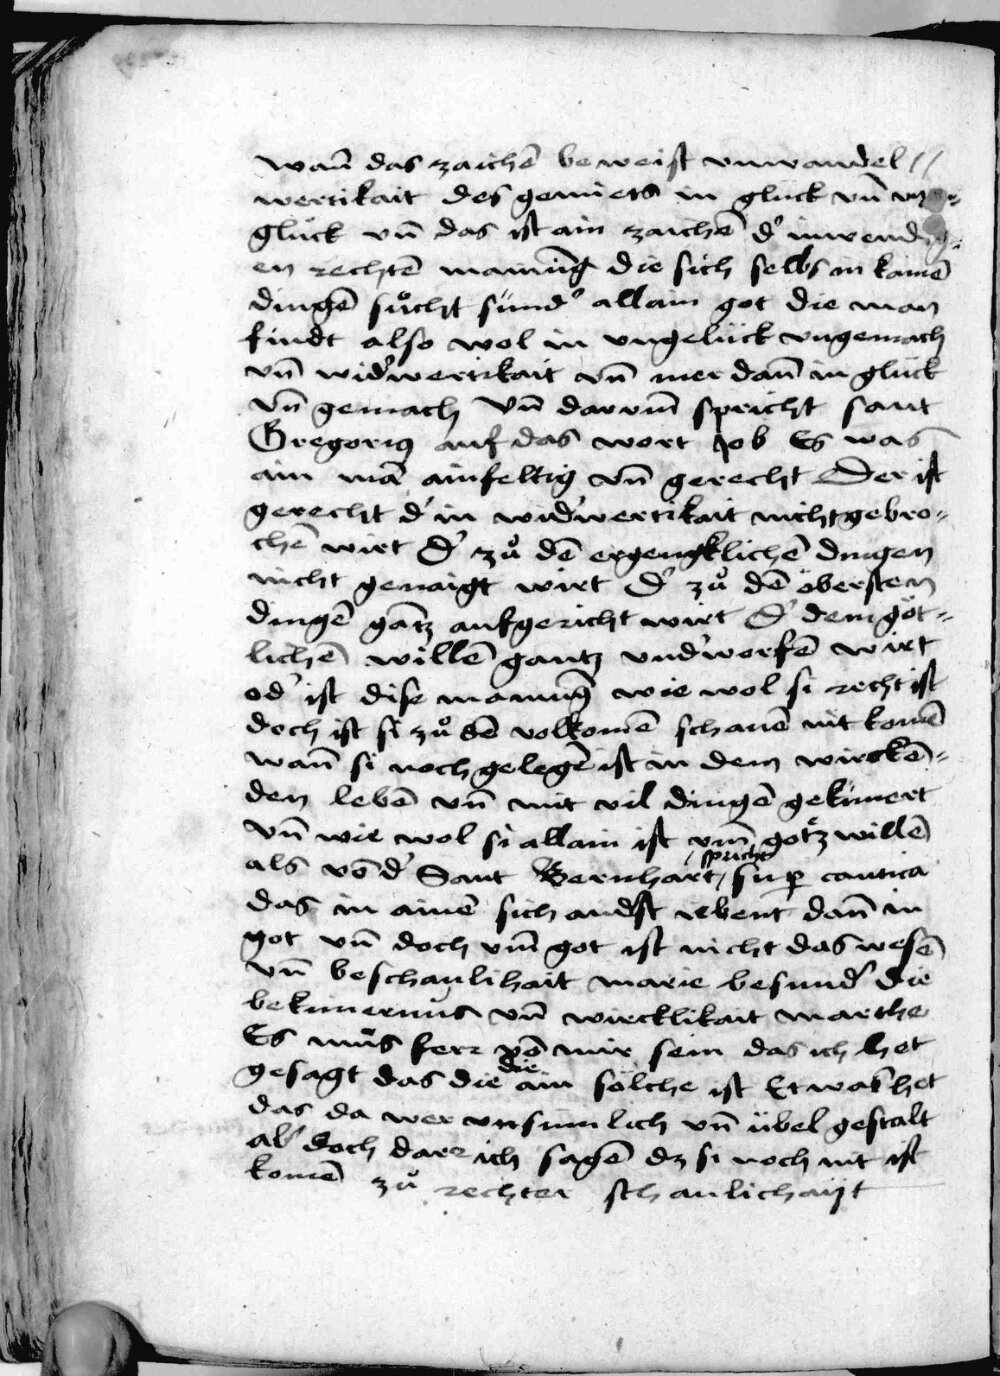 wañ das zaichē beweist vnwandel //
wertikait des gemiets in glück vñ vn=
glück vñ das ist ain zaichē d' inwendig=
en rechtē mainūg die sich selbs in kainē
dingē sůcht sund' allain got die man
findt also wol in vngelück vngemach
vñ wid'wertikait vñ mer dañ in glück
vñ gemach Vñ darvm̄ spricht sant
Gregorig auf das wort Job Es was
ain mā ainfeltig vñ gerecht Der ist
gerecht d' in wid'wertikait nicht gebro=
chē wirt D' zů dē ergengklichē dingen
nicht genaigt wirt D' zů dē öbersten
dingē gātz aufgericht wirt D' dem göt=
lichē willē gantz vnd'worfē wirt
od' ist dise mainūg wie wol si recht ist
doch ist si zů dē volkomē schauē nit komē
wañ si noch gelegē ist in dem wirckē=
den lebē vñ mit vil dingē gekūmert
vñ wie wol si allain ist vm̄ gotz willē
als vō d' Sant Bernhart / spricht / sup cantica
das in ainē sich and'st iebent dañ in
got vñ doch vm̄ got ist nicht das wesē
vñ beschaulihait marie besund' die
bekumernus vñ wircklikait marthe
Es můs ferr vō mir sein das ich het
gesagt das die die ain sölche ist Etwas het
das da wer vnsinnlich vñ übel gestalt
ab' doch darr ich sagē dz si noch nit ist
komē zů rechter schaulichait